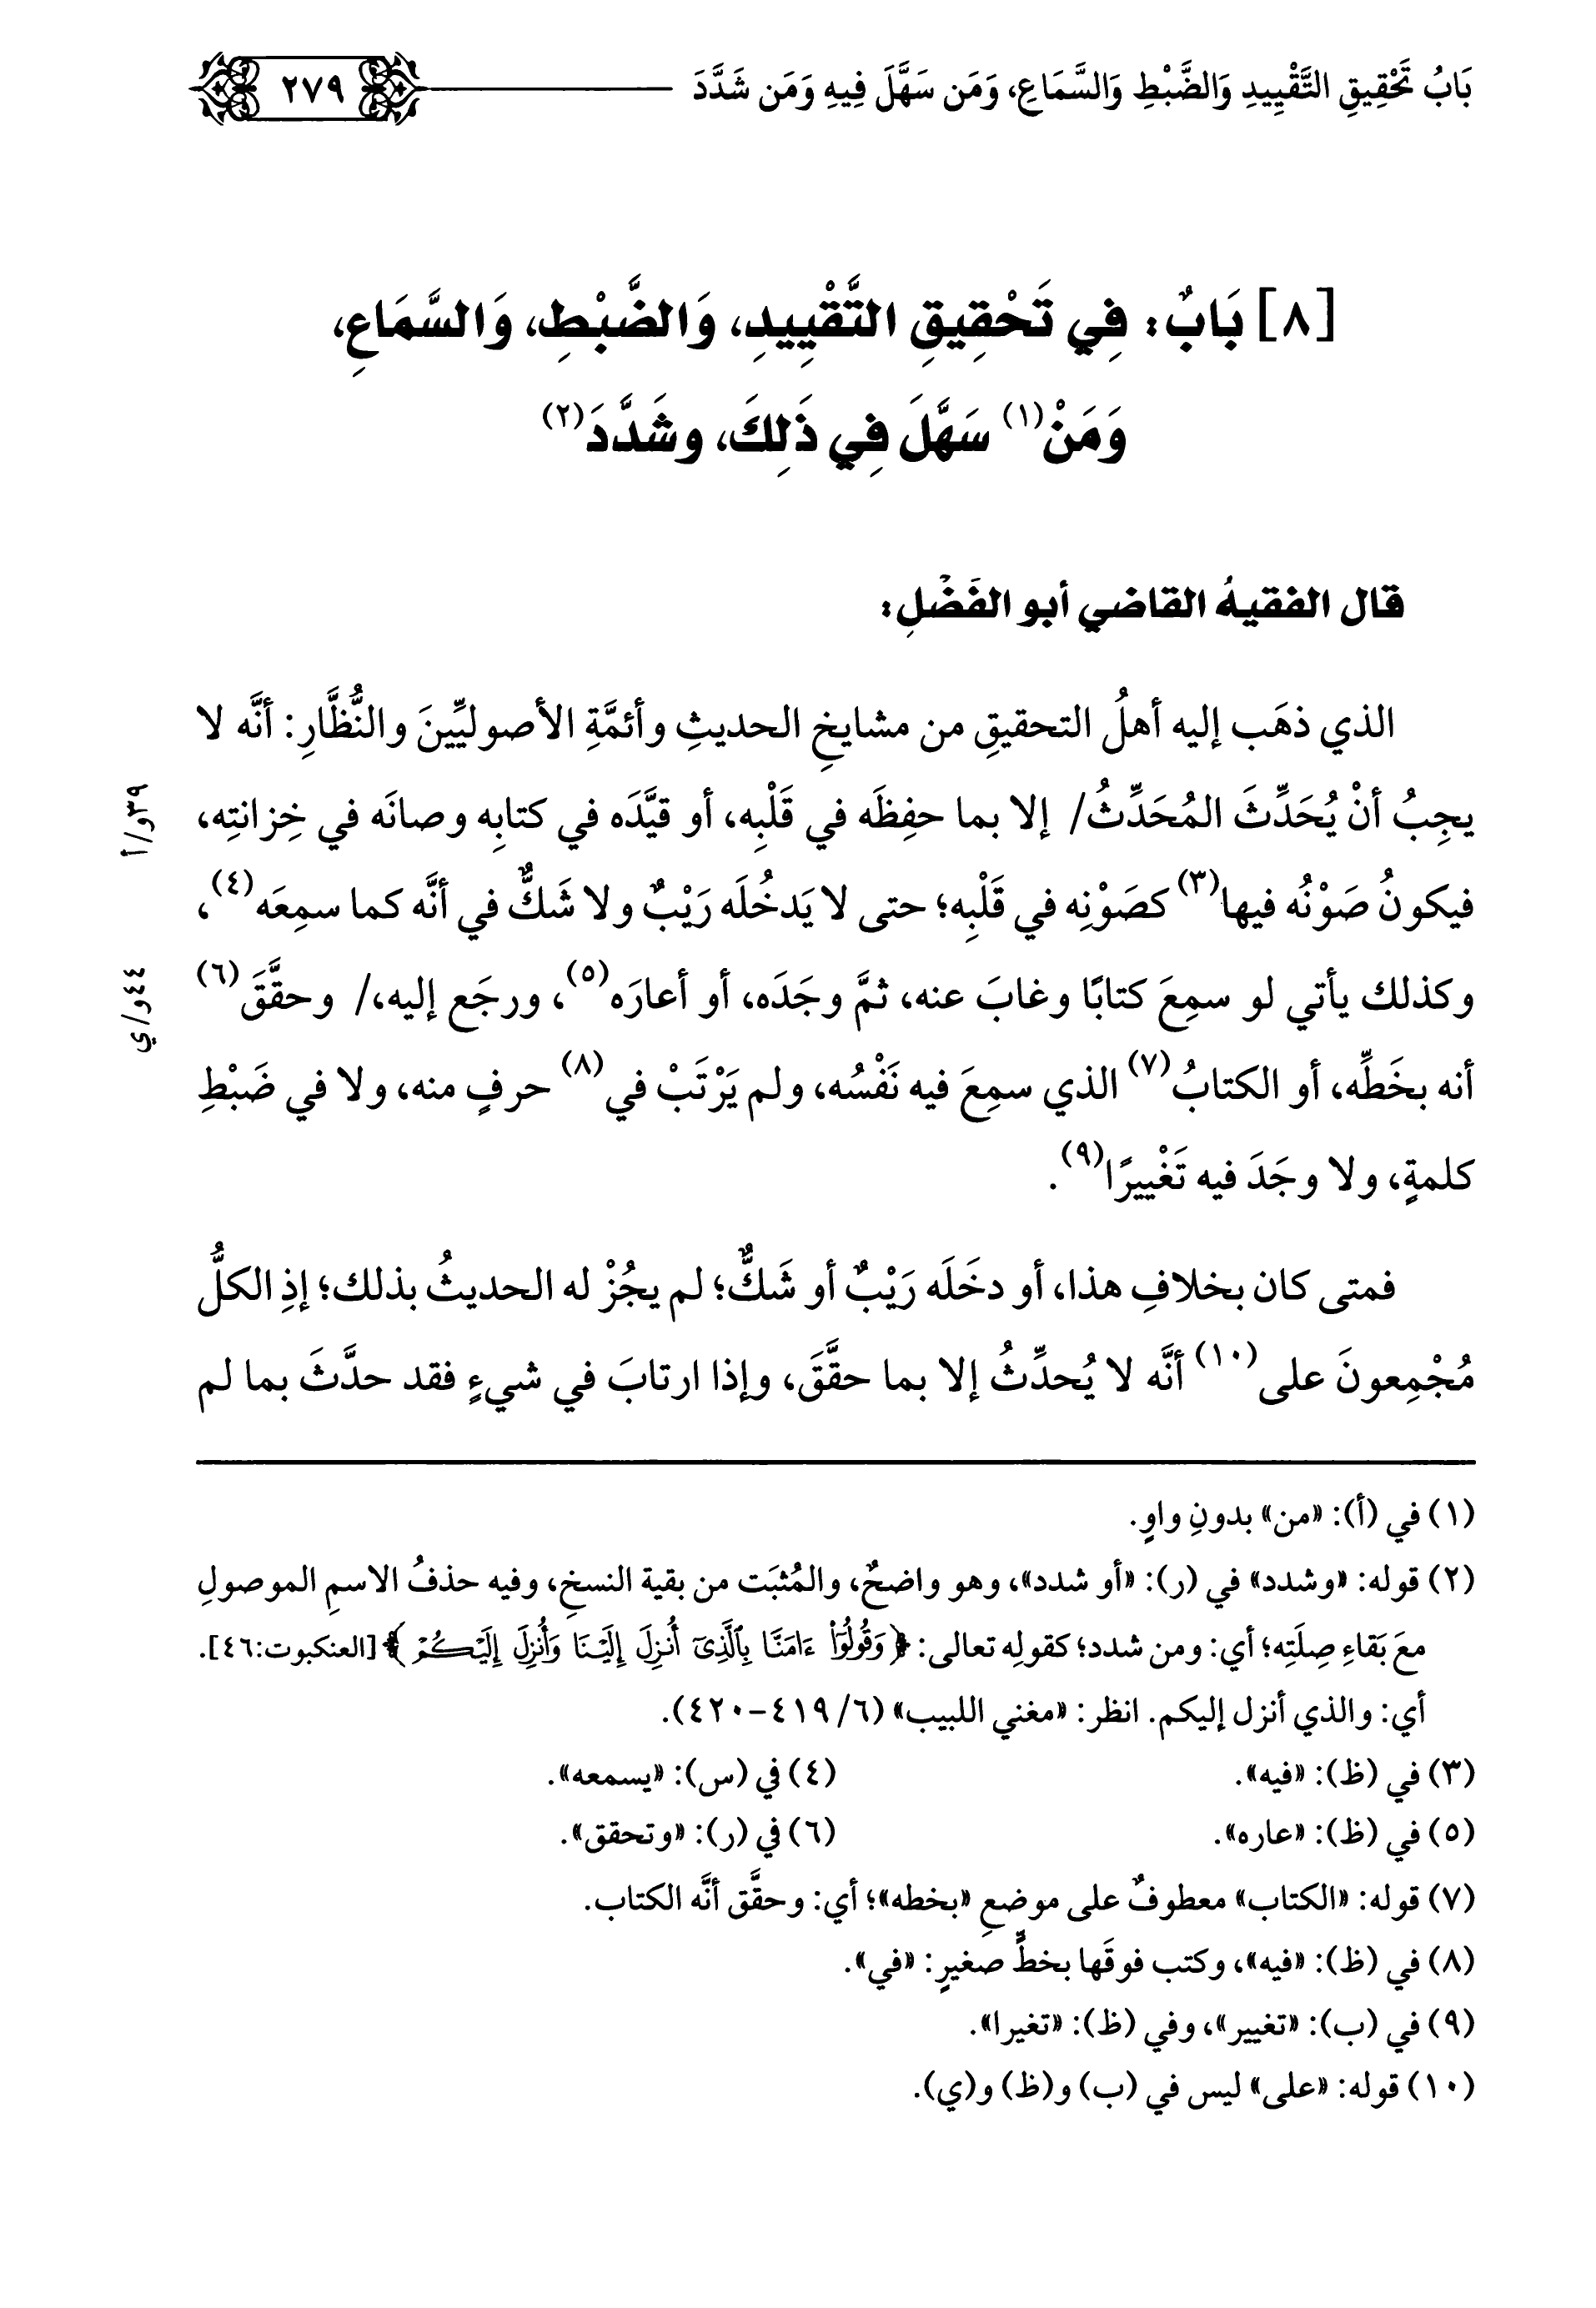 بَابُ تَحْقِيقِ التَّقْيِيدِ وَالضَّبْطِ وَالسَّمَاعِ، وَمَن سَهَّلَ فِيهِ وَمَن شَدَّدَ ٢٧٩
[٨] بَابٌ: فِي تَحْقِيقِ التَّقْيِيدِ، وَالضَّبْطِ، وَالسَّمَاعِ،
وَمَنْ(١) سَهَّلَ فِي ذَلِكَ، وشَدَّدَ(٢)
قال الفقيهُ القاضي أبو الفَضْلِ:
الذي ذهَب إليه أهلُ التحقيقِ من مشايخِ الحديثِ وأئمَّةِ الأصوليِّينَ والنُّظَّارِ: أنَّه لا
يجِبُ أنْ يُحَدِّثَ المُحَدِّثُ/ إلا بما حفِظَه في قَلْبِه، أو قيَّدَه في كتابِه وصانَه في خِزانتِه،
٣٩و/أ
فيكونُ صَوْنُه فيها(٣) كصَوْنِه في قَلْبِه؛ حتى لا يَدخُلَه رَيْبٌ ولا شَكٌّ في أنَّه كما سمِعَه(٤)،
وكذلك يأتي لو سمِعَ كتابًا وغابَ عنه، ثمَّ وجَدَه، أو أعارَه(٥)، ورجَع إليه،/ وحقَّقَ(٦)
٤٤و/ي
أنه بخَطِّه، أو الكتابُ(٧) الذي سمِعَ فيه نَفْسُه، ولم يَرْتَبْ في(٨) حرفٍ منه، ولا في ضَبْطِ
كلمةٍ، ولا وجَدَ فيه تَغْييرًا(٩).
فمتى كان بخلافِ هذا، أو دخَلَه رَيْبٌ أو شَكٌّ؛ لم يجُزْ له الحديثُ بذلك؛ إذِ الكلُّ
مُجْمِعونَ على(١٠) أنَّه لا يُحدِّثُ إلا بما حقَّقَ، وإذا ارتابَ في شيءٍ فقد حدَّثَ بما لم
(١) في (أ): «من» بدونِ واوٍ.
(٢) قوله: «وشدد» في (ر): «أو شدد»، وهو واضحٌ، والمُثبَت من بقية النسخِ، وفيه حذفُ الاسمِ الموصولِ
معَ بَقاءِ صِلَتِه؛ أي: ومن شدد؛ كقولِه تعالى: ﴿وَقُولُوٓا۟ ءَامَنَّا بِٱلَّذِىٓ أُنزِلَ إِلَيْنَا وَأُنزِلَ إِلَيْكُمْ﴾ [العنكبوت:٤٦].
أي: والذي أنزل إليكم. انظر: «مغني اللبيب» (٦/ ٤١٩-٤٢٠).
(٣) في (ظ): «فيه». (٤) في (س): «يسمعه».
(٥) في (ظ): «عاره». (٦) في (ر): «وتحقق».
(٧) قوله: «الكتاب» معطوفٌ على موضعِ «بخطه»؛ أي: وحقَّق أنَّه الكتاب.
(٨) في (ظ): «فيه»، وكتب فوقَها بخطٍّ صغيرٍ: «في».
(٩) في (ب): «تغيير»، وفي (ظ): «تغيرا».
(١٠) قوله: «على» ليس في (ب) و(ظ) و(ي).